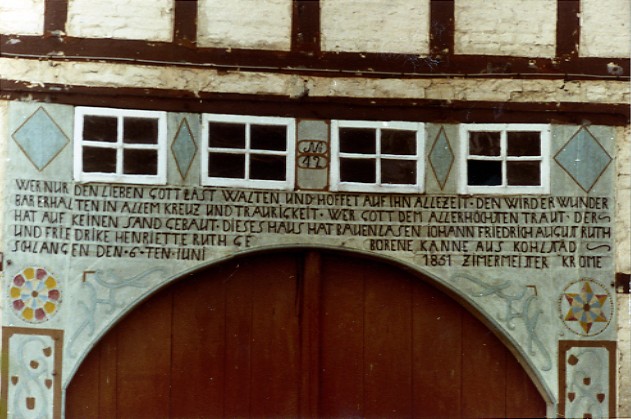 No
42
WER NUR DEN LIEBEN GOTT LÄST WALTEN UND HOFFET AUF IHN ALLEZEIT · DEN WIRD ER WUNDER
BAR ERHALTEN IN ALLEM KREUZ UND TRAURIGKEIT · WER GOTT DEM ALLERHÖCHTEN TRAUT · DER
HAT AUF KEINEN SAND GEBAUT · DIESES HAUS HAT BAUEN LASEN IOHANN FRIEDRICH AUGUT RUTH
UND FRIEDRIKE HENRIETTE RUTH GE BORENE KANNE AUS KOHLSTÄD
SCHLANGEN DEN · 6 · TEN IUNI 1851 ZIMERMEISTER KROME